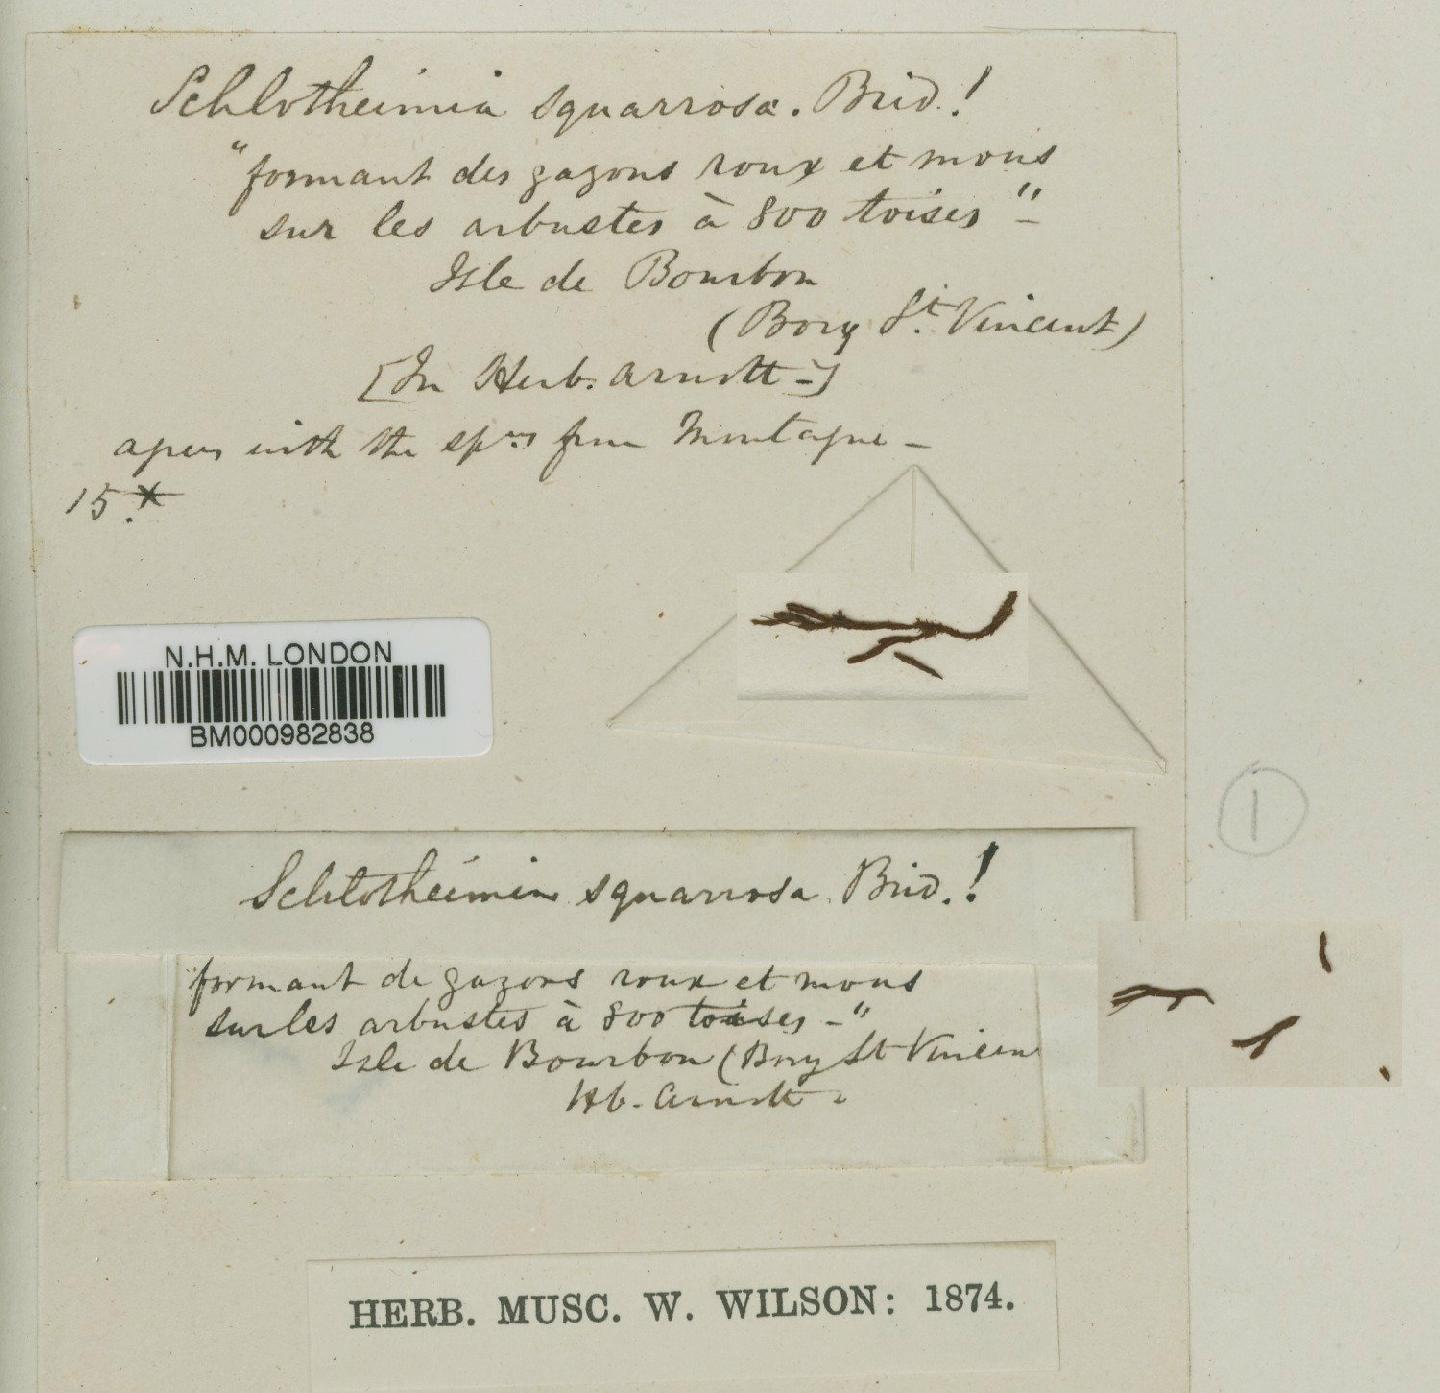 Schlotheimia squarrosa. Brid.!
"formant des gazons roux et mous
sur les arbustes à 800 toises"-
Isle de Bourbon
(Bory St. Vincent)
[In Herb. Arnott-]
agrees with the spns from Montagne -
15.*
N.H.M. LONDON
BM000982838
1
Schlotheimia squarrosa. Brid.!
formant de gazons roux et mous
sur les arbustes à 800 toises -"
Isle de Bourbon (Bory St Vincen
Hb. Arnott-
HERB. MUSC. W. WILSON: 1874.